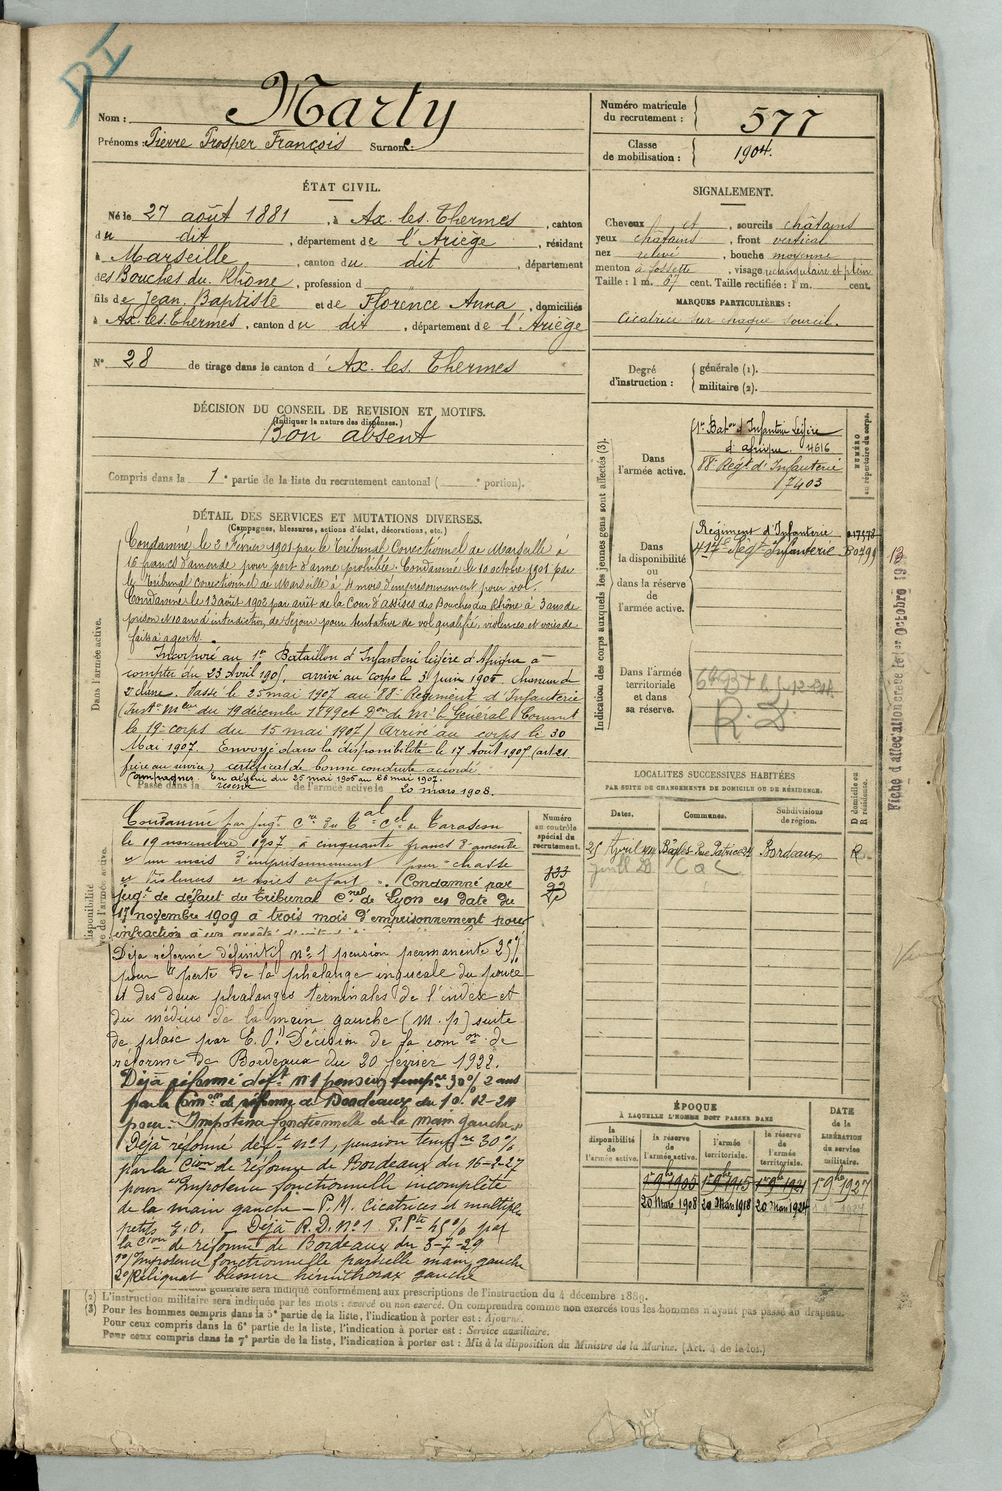 DI
Nom : Marty
Prénoms : Pierre Prosper François Surnom :
Numéro matricule du recrutement : 577
Classe de mobilisation : 1904.
ÉTAT CIVIL.
Né le 27 août 1881, à Ax. les. Thermes, canton
du dit, département de l'Ariège, résidant
à Marseille, canton du dit, département
des Bouches du Rhône, profession d
fils de Jean Baptiste et de Florence Anna, domiciliés
à Ax. les. Thermes, canton du dit, département de l'Ariège
N° 28 de tirage dans le canton d'Ax. les. Thermes
SIGNALEMENT.
Cheveux et, sourcils châtains
yeux châtains, front vertical
nez relevé, bouche moyenne
menton à fossette, visage rectangulaire et plein
Taille : 1 m. 67 cent. Taille rectifiée : 1 m. cent.
MARQUES PARTICULIÈRES :
Cicatrice sur chaque sourcil.
Degré d'instruction : générale (1).
militaire (2).
DÉCISION DU CONSEIL DE REVISION ET MOTIFS.
(Indiquer la nature des dispenses.)
Bon absent
Compris dans la 1e partie de la liste du recrutement cantonal ( e portion).
DÉTAIL DES SERVICES ET MUTATIONS DIVERSES.
(Campagnes, blessures, actions d'éclat, décorations, etc.)
Dans l'armée active.
Condamné le 2 Février 1901 par le Tribunal Correctionnel de Marseille à
16 francs d'amende pour port d'arme prohibée. Condamné le 10 octobre 1901 par
le Tribunal correctionnel de Marseille à 4 mois d'emprisonnement pour vol.
Condamné le 13 août 1902 par arrêt de la Cour d'assises des Bouches du Rhône à 3 ans de
prison et 10 ans d'interdiction de séjour pour tentative de vol qualifié, violences et voies de
fait à agents.
Incorporé au 1er Bataillon d'Infanterie légère d'Afrique à
compter du 23 Avril 1905. arrivé au corps le 3 juin 1905. Chasseur de
2e classe. Passé le 25 mai 1907 au 88e Régiment d'Infanterie
(Inston Mlle du 19 décembre 1899 et Don de Mr le Général Commt
le 19e corps du 15 mai 1907) Arrivé au corps le 30
Mai 1907. Envoyé dans la disponibilité le 17 Août 1907 (art 21
frère au service) certificat de bonne conduite accordé.
Campagnes. En algérie du 25 mai 1905 au 28 mai 1907.
Passé dans la réserve de l'armée active le 20 mars 1908.
Condamné par jugt Cel du Tal Cel de Tarascon
le 19 novembre 1907 à cinquante francs d'amende
et un mois d'emprisonnement pour "chasse
et violences et voies de fait". Condamné par
jugt de défaut du Tribunal Cnel de Lyon en date du
17 novembre 1909 à trois mois d'emprisonnement pour
infraction à un arrêté
Déjà réformé définitif n° 1 pension permanente 25%
pour "perte de la phalange unguéale du pouce
et des deux phalanges terminales de l'index et
du médius de la main gauche (m. p) suite
de plaie par E. O." Décision de la comon de
réforme de Bordeaux du 20 février 1922.
Déjà réformé déft n° 1 pension tempre 30% 2 ans
par la Comon de réforme de Bordeaux du 10-12-24
pour "Impotence fonctionnelle de la main gauche"
Déjà réformé déft n° 1, pension tempre 30%
par la Cion de réforme de Bordeaux du 16-2-27
pour "Impotence fonctionnelle incomplète
de la main gauche — P.M. Cicatrices et multiples
petits E.O. Déjà R.D. N° 1 P. Pte 45% par
la Cion de réforme de Bordeaux du 5-7-29
1°/ Impotence fonctionnelle partielle main gauche
2°/ Reliquat blessure hémithorax gauche
Indication des corps auxquels les jeunes gens sont affectés (3).
NUMÉRO au répertoire du corps.
Dans l'armée active.
1er Baton d'Infanterie légère
d'Afrique. 4616
88e Régt d'Infanterie
17403
Dans la disponibilité ou dans la réserve de l'armée active.
Régiment d'Infanterie
417e Régt Infanterie
Dans l'armée territoriale et dans sa réserve.
R. D.
Fiche d'affectation créée le 1er Octobre 19
LOCALITÉS SUCCESSIVES HABITÉES
PAR SUITE DE CHANGEMENTS DE DOMICILE OU DE RÉSIDENCE.
Numéro au contrôle spécial du recrutement.
Dates. Communes. Subdivisions de région. D domicile ou R résidence.
Bègles Bordeaux R.
ÉPOQUE
À LAQUELLE L'HOMME DOIT PASSER DANS
la disponibilité de l'armée active.
la réserve de l'armée active.
l'armée territoriale.
la réserve de l'armée territoriale.
DATE de la LIBÉRATION du service militaire.
1er 9bre 1905 1er 9bre 1915 1er 9bre 1921 1er 9bre 1927
20 Mars 1908 20 Mars 1918 20 Mars 1924
générale sera indiqué conformément aux prescriptions de l'instruction du 4 décembre 1889.
(2) L'instruction militaire sera indiquée par les mots : exercé ou non exercé. On comprendra comme non exercés tous les hommes n'ayant pas passé au drapeau.
(3) Pour les hommes compris dans la 5e partie de la liste, l'indication à porter est : Ajourné.
Pour ceux compris dans la 6e partie de la liste, l'indication à porter est : Service auxiliaire.
Pour ceux compris dans la 7e partie de la liste, l'indication à porter est : Mis à la disposition du Ministre de la Marine. (Art. 4 de la loi.)